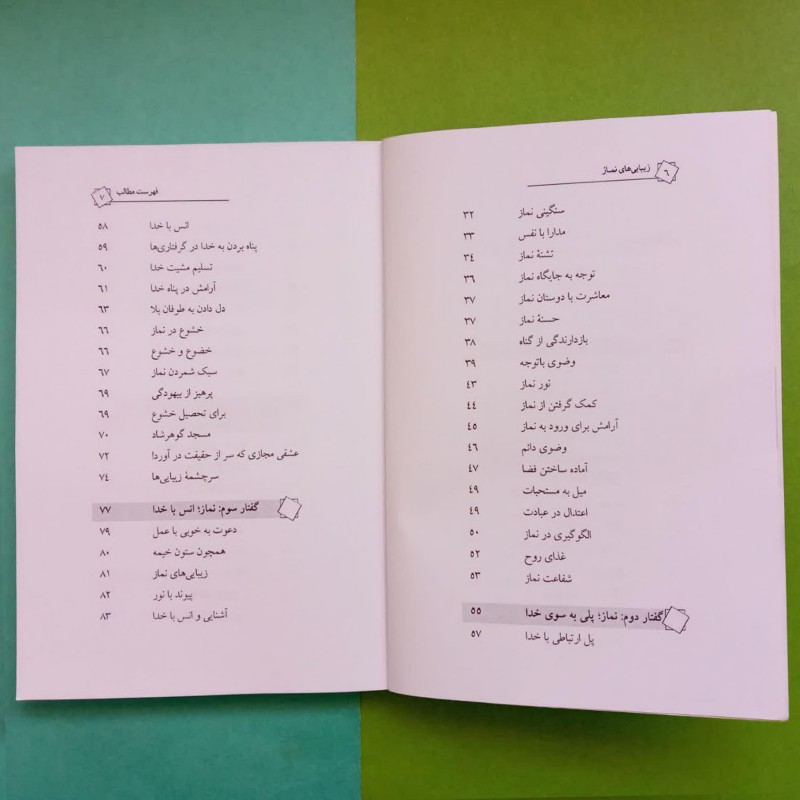 ٦ زیبایی‌های نماز
سنگینی نماز ۳۲
مدارا با نفس ۳۳
تشنهٔ نماز ۳٤
توجه به جایگاه نماز ۳٦
معاشرت با دوستان نماز ۳۷
حسنهٔ نماز ۳۷
بازدارندگی از گناه ۳۸
وضوی باتوجه ۳۹
نور نماز ٤۳
کمک گرفتن از نماز ٤٤
آرامش برای ورود به نماز ٤٥
وضوی دائم ٤٦
آماده ساختن فضا ٤۷
میل به مستحبات ٤۹
اعتدال در عبادت ٤۹
الگوگیری در نماز ٥۰
غذای روح ٥۲
شفاعت نماز ٥۳
گفتار دوم: نماز؛ پلی به سوی خدا ٥٥
پل ارتباطی با خدا ٥۷
فهرست مطالب ۷
انس با خدا ٥۸
پناه بردن به خدا در گرفتاری‌ها ٥۹
تسلیم مشیت خدا ٦۰
آرامش در پناه خدا ٦۱
دل دادن به طوفان بلا ٦۳
خشوع در نماز ٦٦
خضوع و خشوع ٦٦
سبک شمردن نماز ٦۷
پرهیز از بیهودگی ٦۹
برای تحصیل خشوع ٦۹
مسجد گوهرشاد ۷۰
عشقی مجازی که سر از حقیقت در آورد! ۷۲
سرچشمهٔ زیبایی‌ها ۷٤
گفتار سوم: نماز؛ انس با خدا ۷۷
دعوت به خوبی با عمل ۷۹
همچون ستون خیمه ۸۰
زیبایی‌های نماز ۸۱
پیوند با نور ۸۲
آشنایی و انس با خدا ۸۳